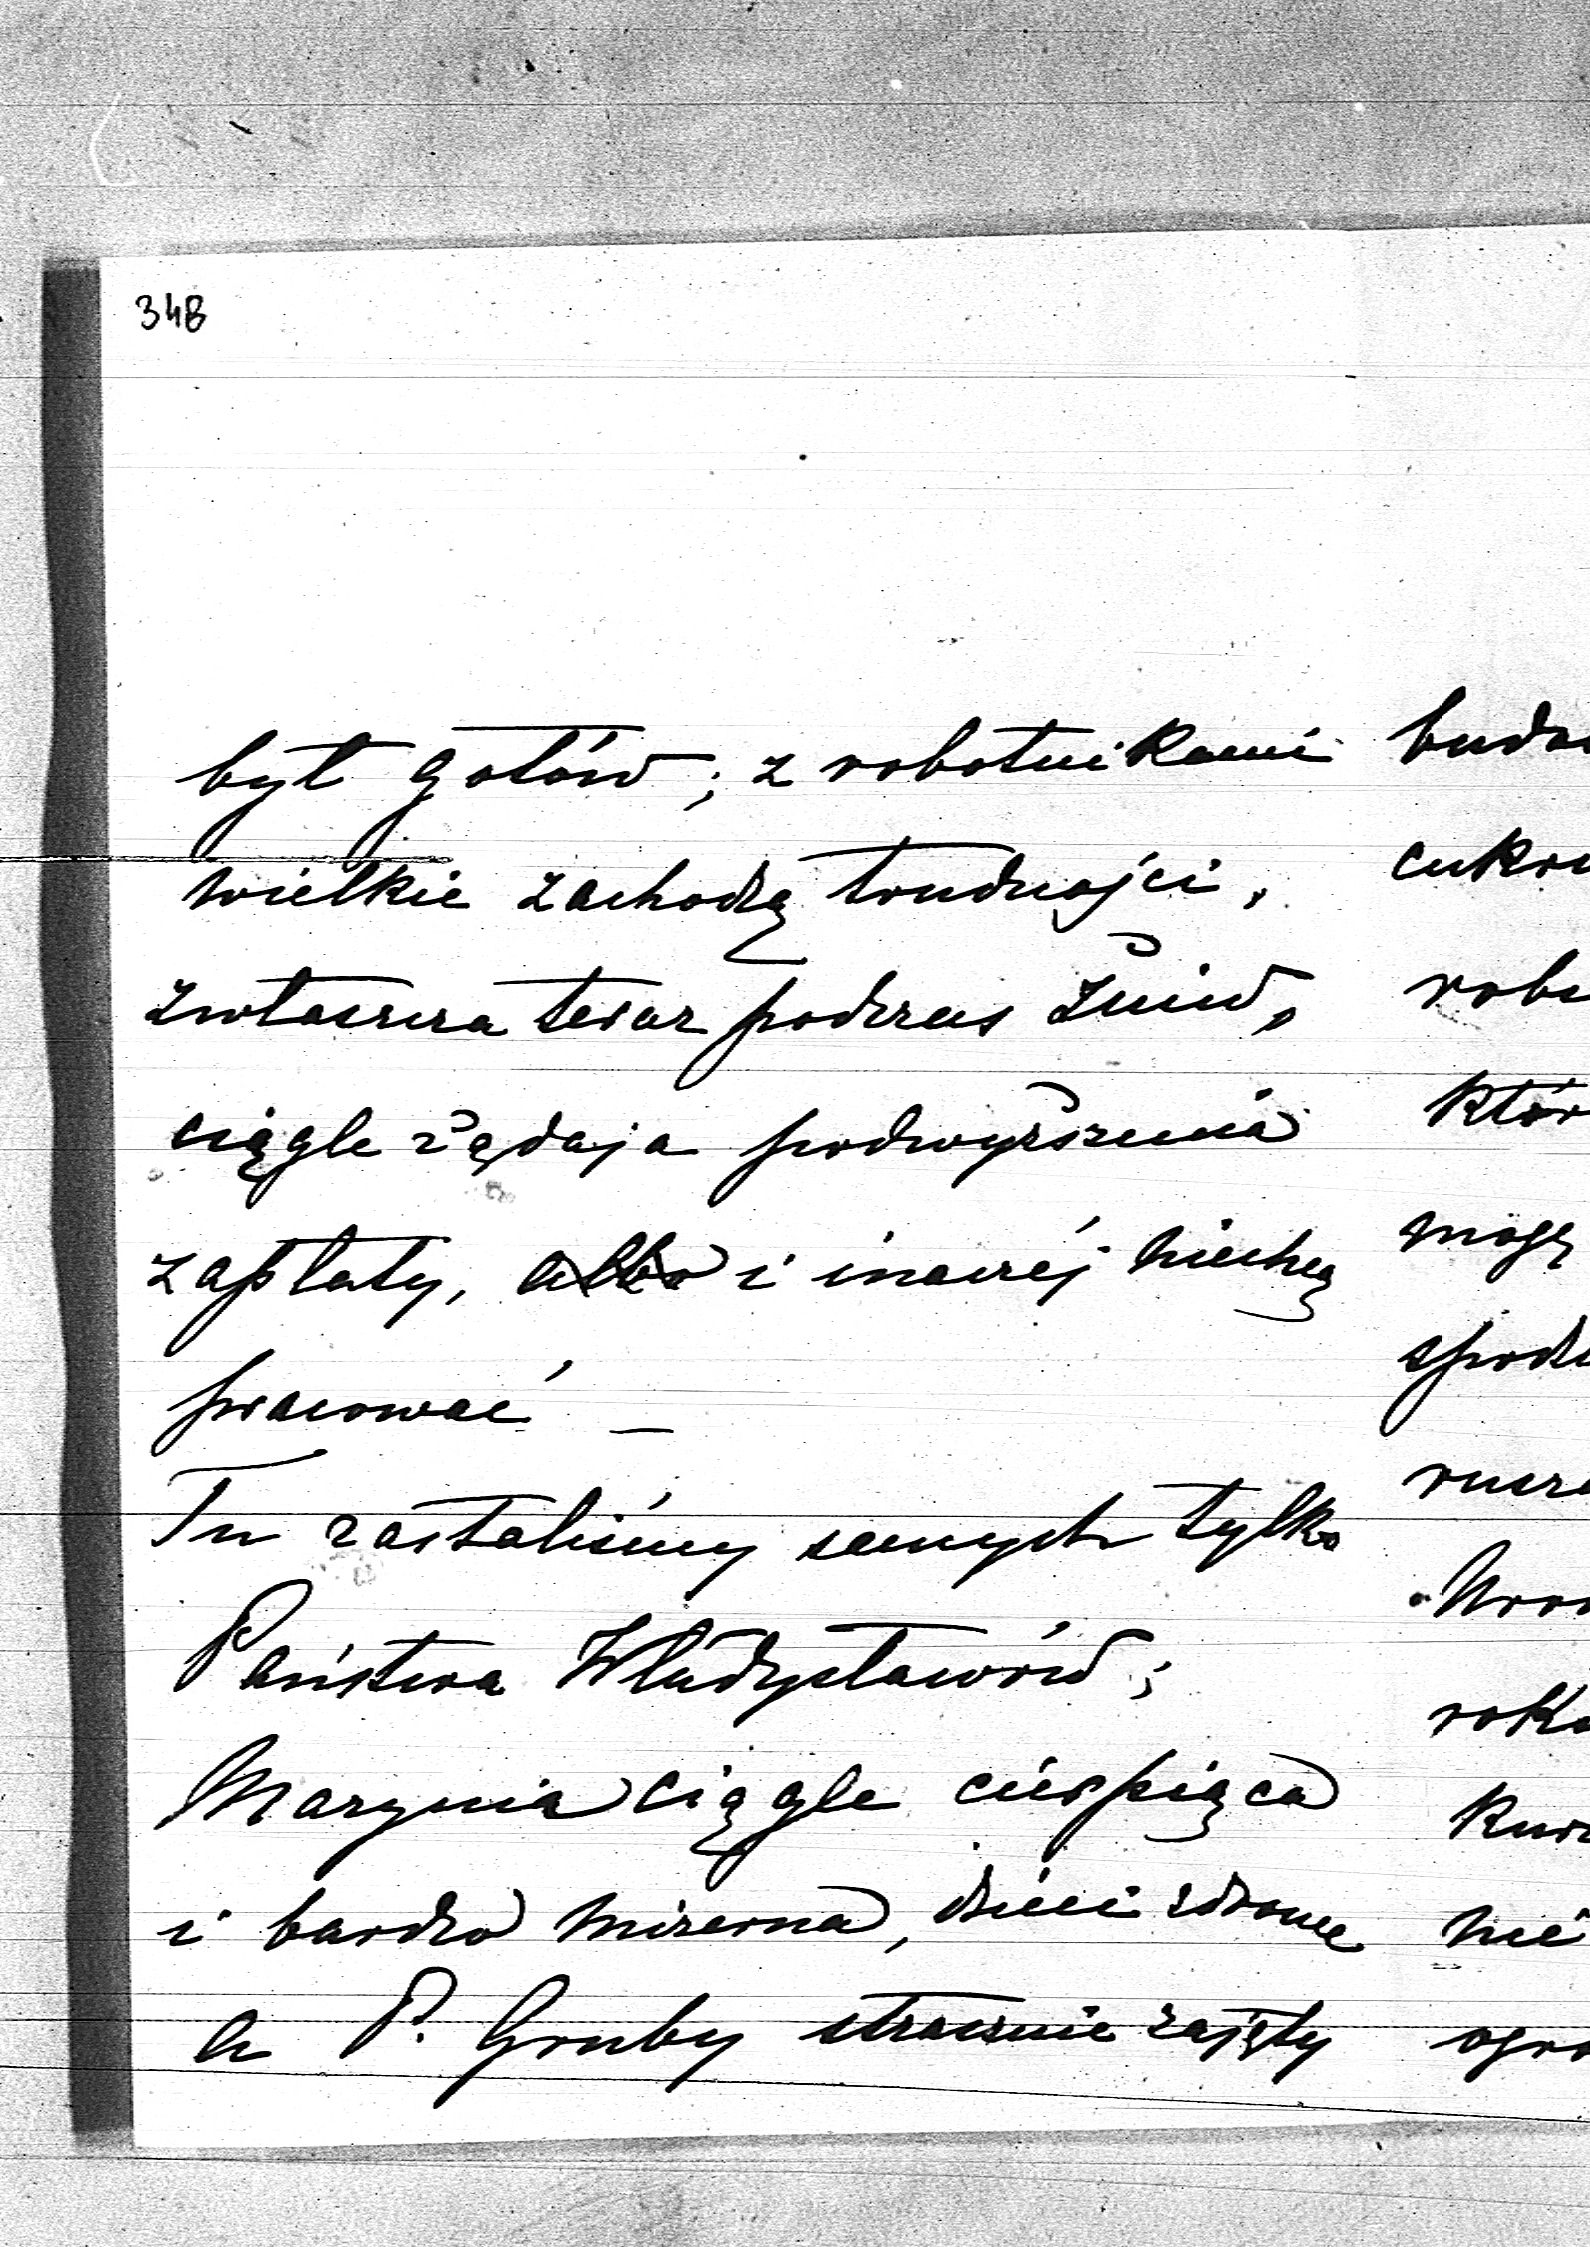 348
był gotów; z robotnikami
wielkie zachodzą trudności,
zwłaszcza teraz podczas żniw,
ciągle rządaja podwyższenia
zapłaty, albo i inaczéj niechcą
pracować —
Tu zastaliśmy samych tylko
Państwa Władysławów;
Marynia ciągle cierpiąca
i bardzo mizerna, dzieci zdrowe
a P. Gruby strasznie zajęty
nie